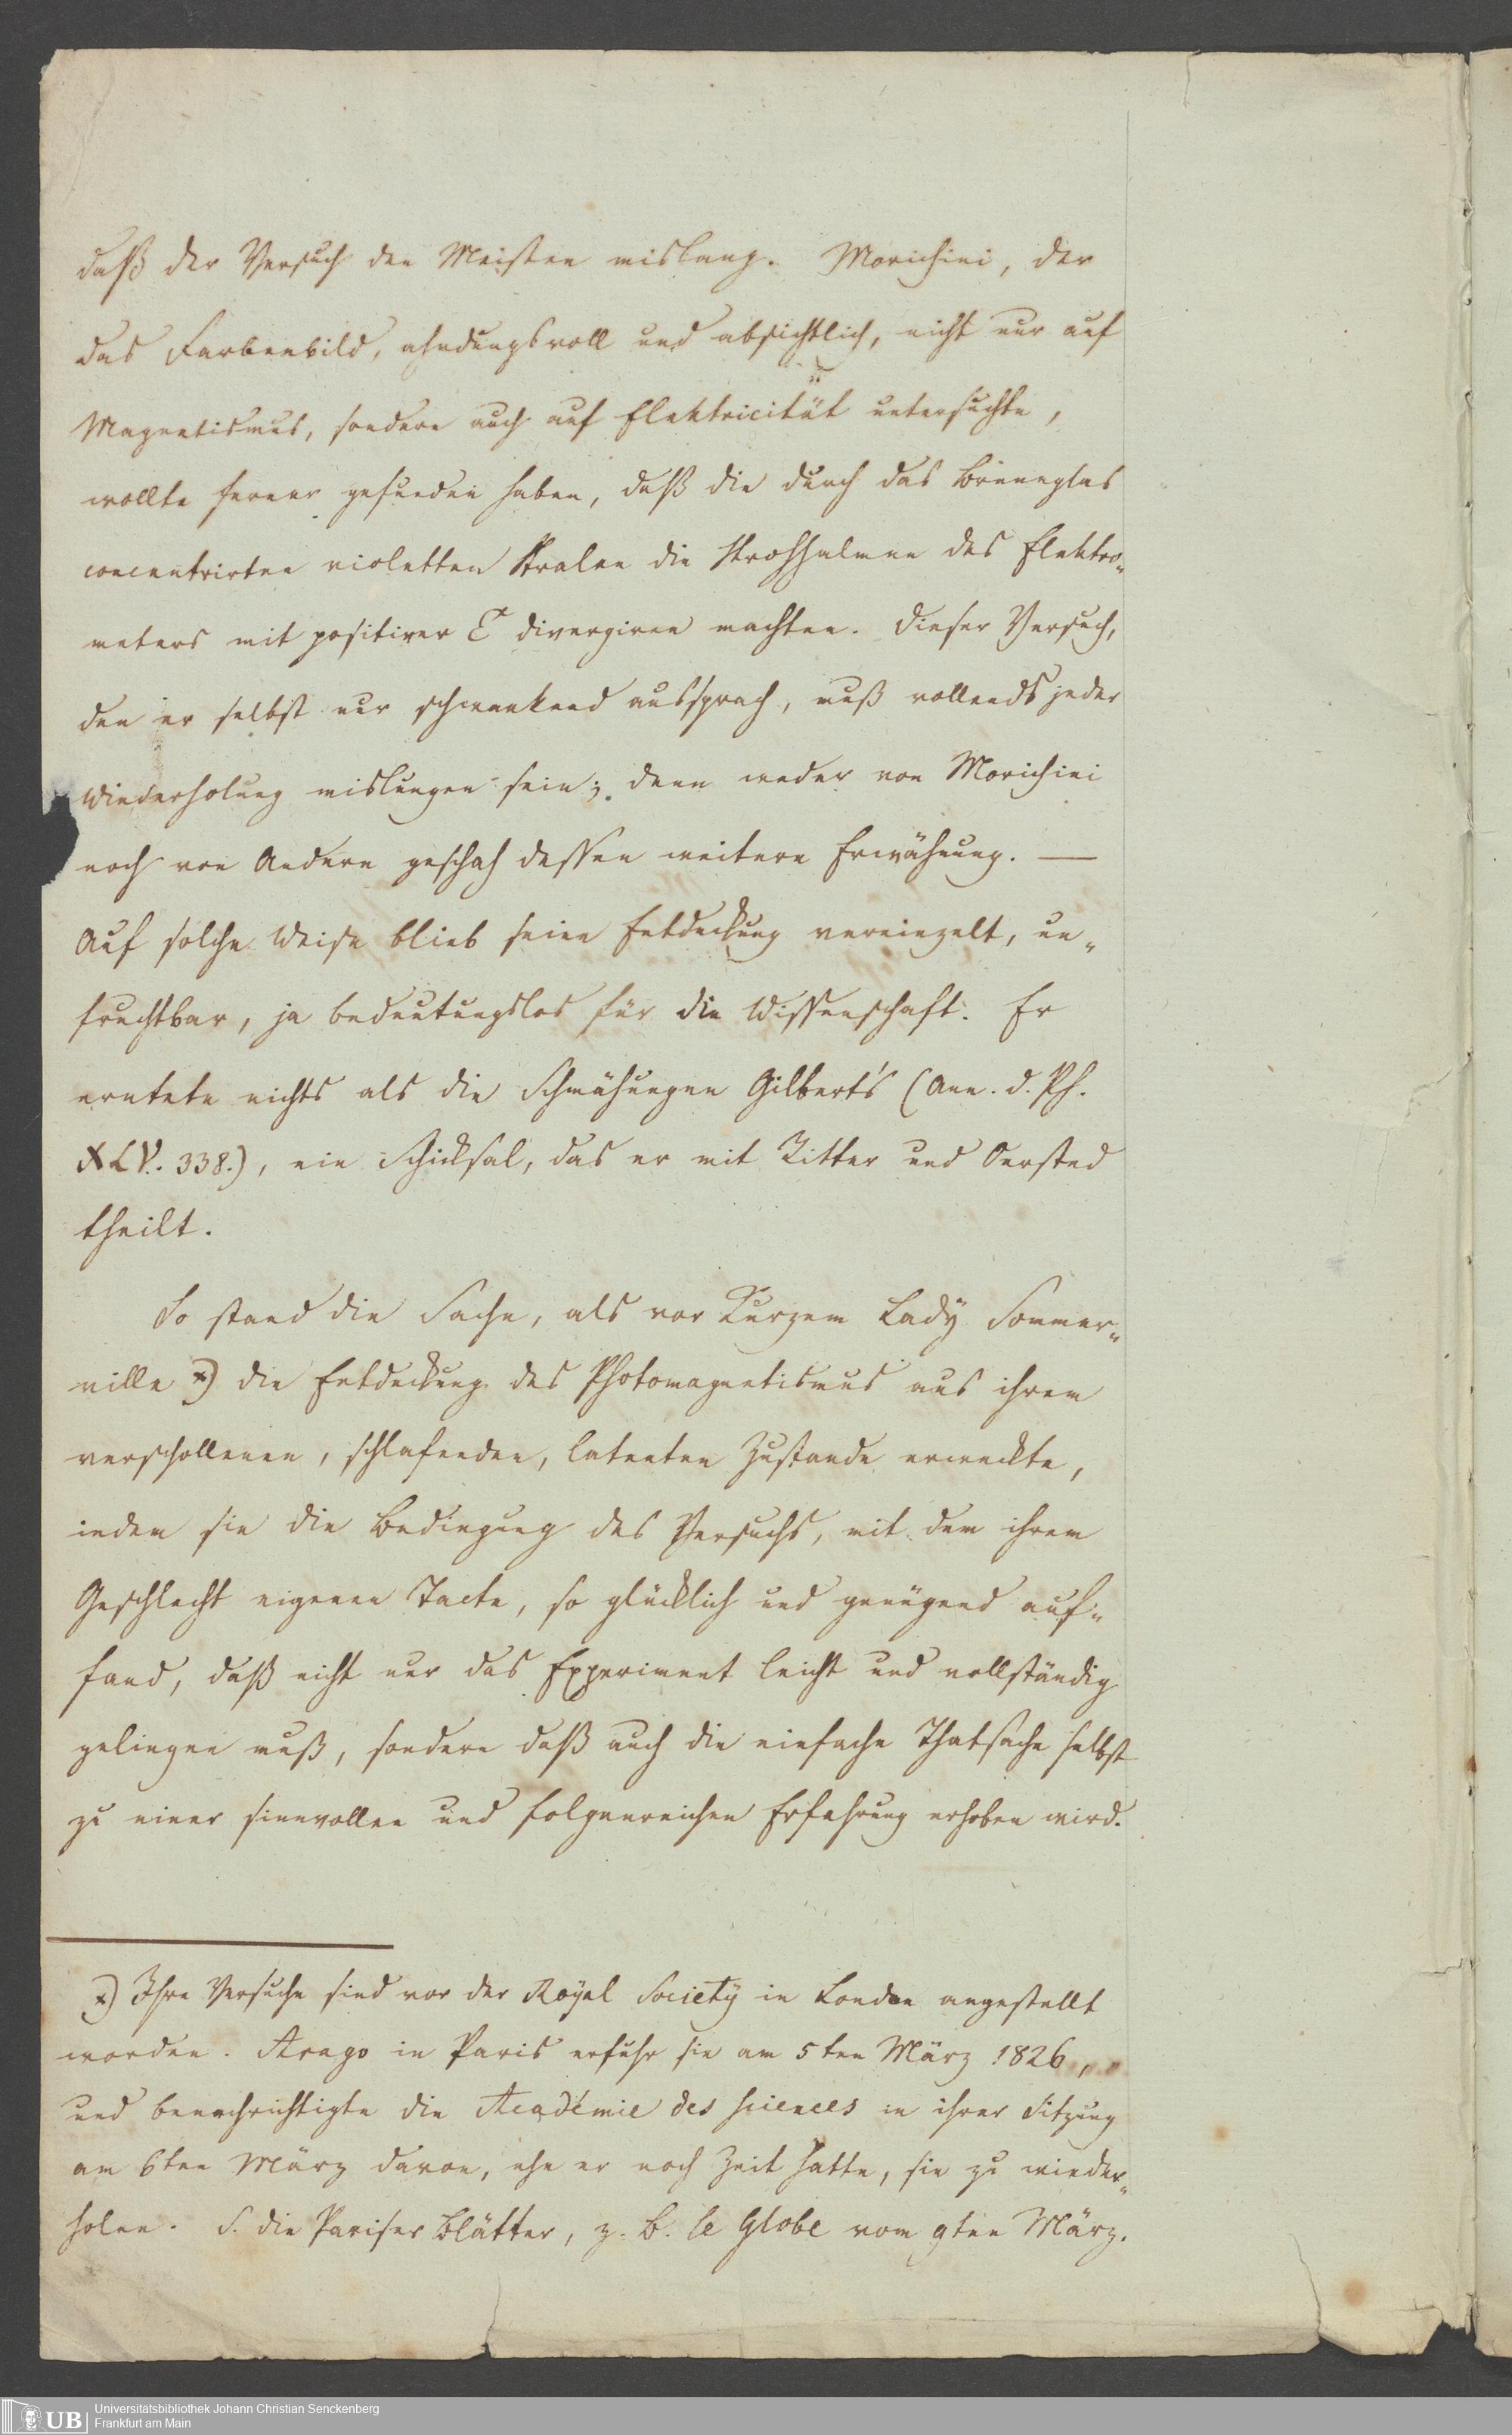 daß der Versuch den Meisten mislang. Morichini, der
das Farbenbild, ahndungsvoll und absichtlich, nicht nur auf
Magnetismus, sondern auch auf Elektricität untersuchte,
wollte ferner gefunden haben, daß die durch das Brennglas
concentrirten violetten Stralen die Strohhalmen des Elektro„
meters mit positiver E divergiren machten. Dieser Versuch,
den er selbst nur schwankend aussprach, muß vollends jeder
Wiederholung mislungen sein; denn weder von Morichini
noch von Andern geschah dessen weitere Erwähnung. —
Auf solche Weise blieb seine Entdeckung vereinzelt, un„
fruchtbar, ja bedeutungslos für die Wissenschaft. Er
erntete nichts als die Schmähungen Gilbert's (Ann. d. Ph.
XLV. 338.), ein Schicksal, das er mit Ritter und Oersted
theilt.
So stand die Sache, als vor Kurzem Lady Sommer„
ville *) die Entdeckung des Photomagnetismus aus ihrem
verschollenen, schlafenden, latenten Zustande erweckte,
indem sie die Bedingung des Versuchs, mit dem ihrem
Geschlecht eigenen Tacte, so glücklich und genügend auf„
fand, daß nicht nur das Experiment leicht und vollständig
gelingen muß, sondern daß auch die einfache Thatsache selbst
zu einer sinnvollen und folgenreichen Erfahrung erhoben wird.
*) Ihre Versuche sind vor der Royal Society in London angestellt
worden. Arago in Paris erfuhr sie am 5ten März 1826,
und benachrichtigte die Académie des sciences in ihrer Sitzung
am 6ten März davon, ehe er noch Zeit hatte, sie zu wieder„
holen. S. die Pariser Blätter, z. B. le Globe vom 9ten März.
UB
Universitätsbibliothek Johann Christian Senckenberg
Frankfurt am Main